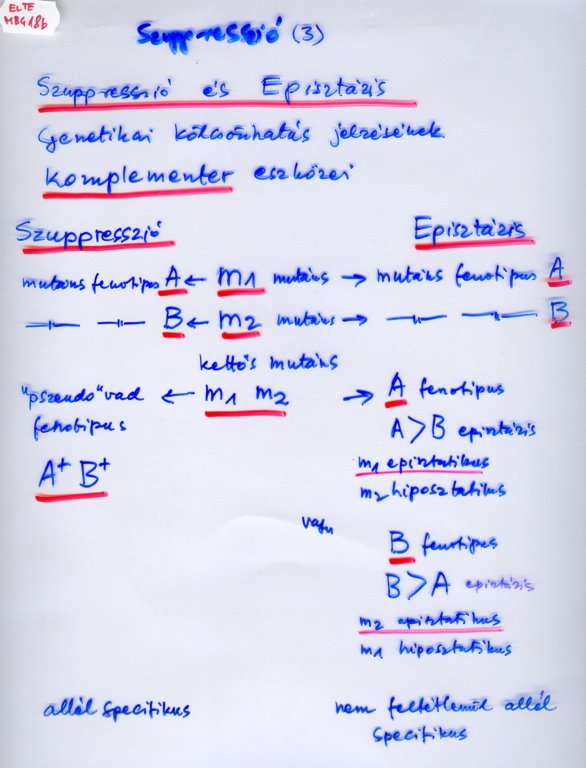 ELTE
MBG18b
Szuppresszió (3)
Szuppresszió és Episztázis
Genetikai kölcsönhatás jelzésének
komplementer eszközei
Szuppresszió
Episztázis
mutáns fenotípus A ← m1 mutáns → mutáns fenotípus A
—"— —"— B ← m2 mutáns → —"— —"— B
kettős mutáns
"pszeudo" vad ← m1 m2 → A fenotípus
fenotípus
A > B episztázis
A+ B+
m1 episztatikus
m2 hiposztatikus
vagy
B fenotípus
B > A episztázis
m2 episztatikus
m1 hiposztatikus
allél specifikus
nem feltétlenül allél
specifikus